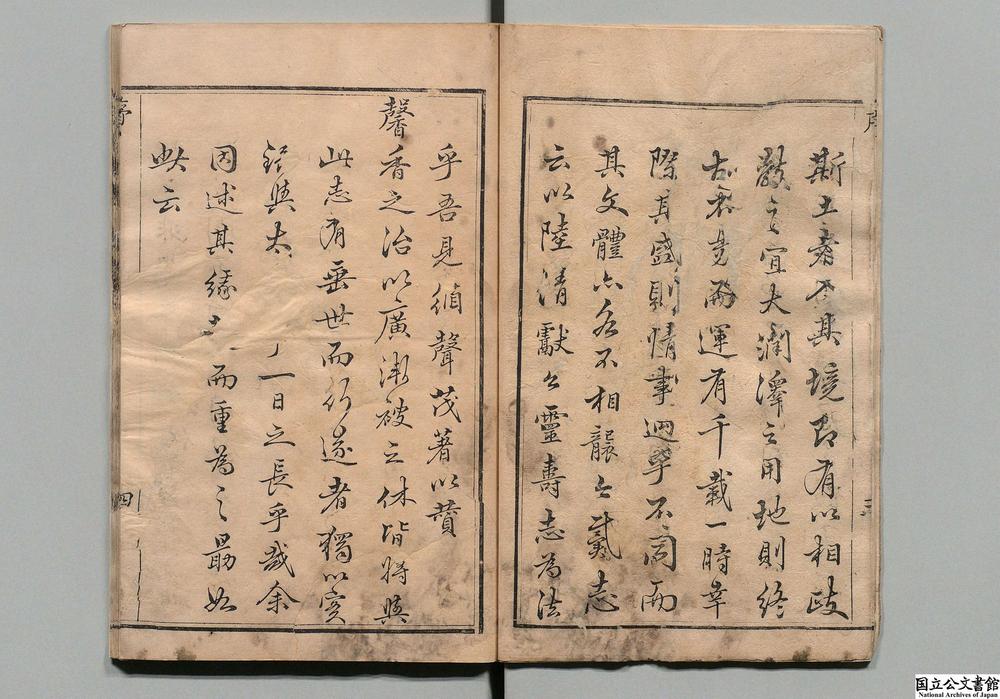 斯土者不其境即有以相歧
敷之宜大潤澤之用地則終
古教覺而運有千載一時幸
際其盛則情事迥乎不同而
其文體亦各不相襲公茲志
云以陸清獻公靈壽志為法
序
三
乎吾見循聲茂著以贊
馨香之治以廣漸被之休皆將與
此志有垂世而行遠者獨以實
録與太一日之長乎哉余
因述其緣而重為之勗如
此云
序
四
国立公文書館
National Archives of Japan